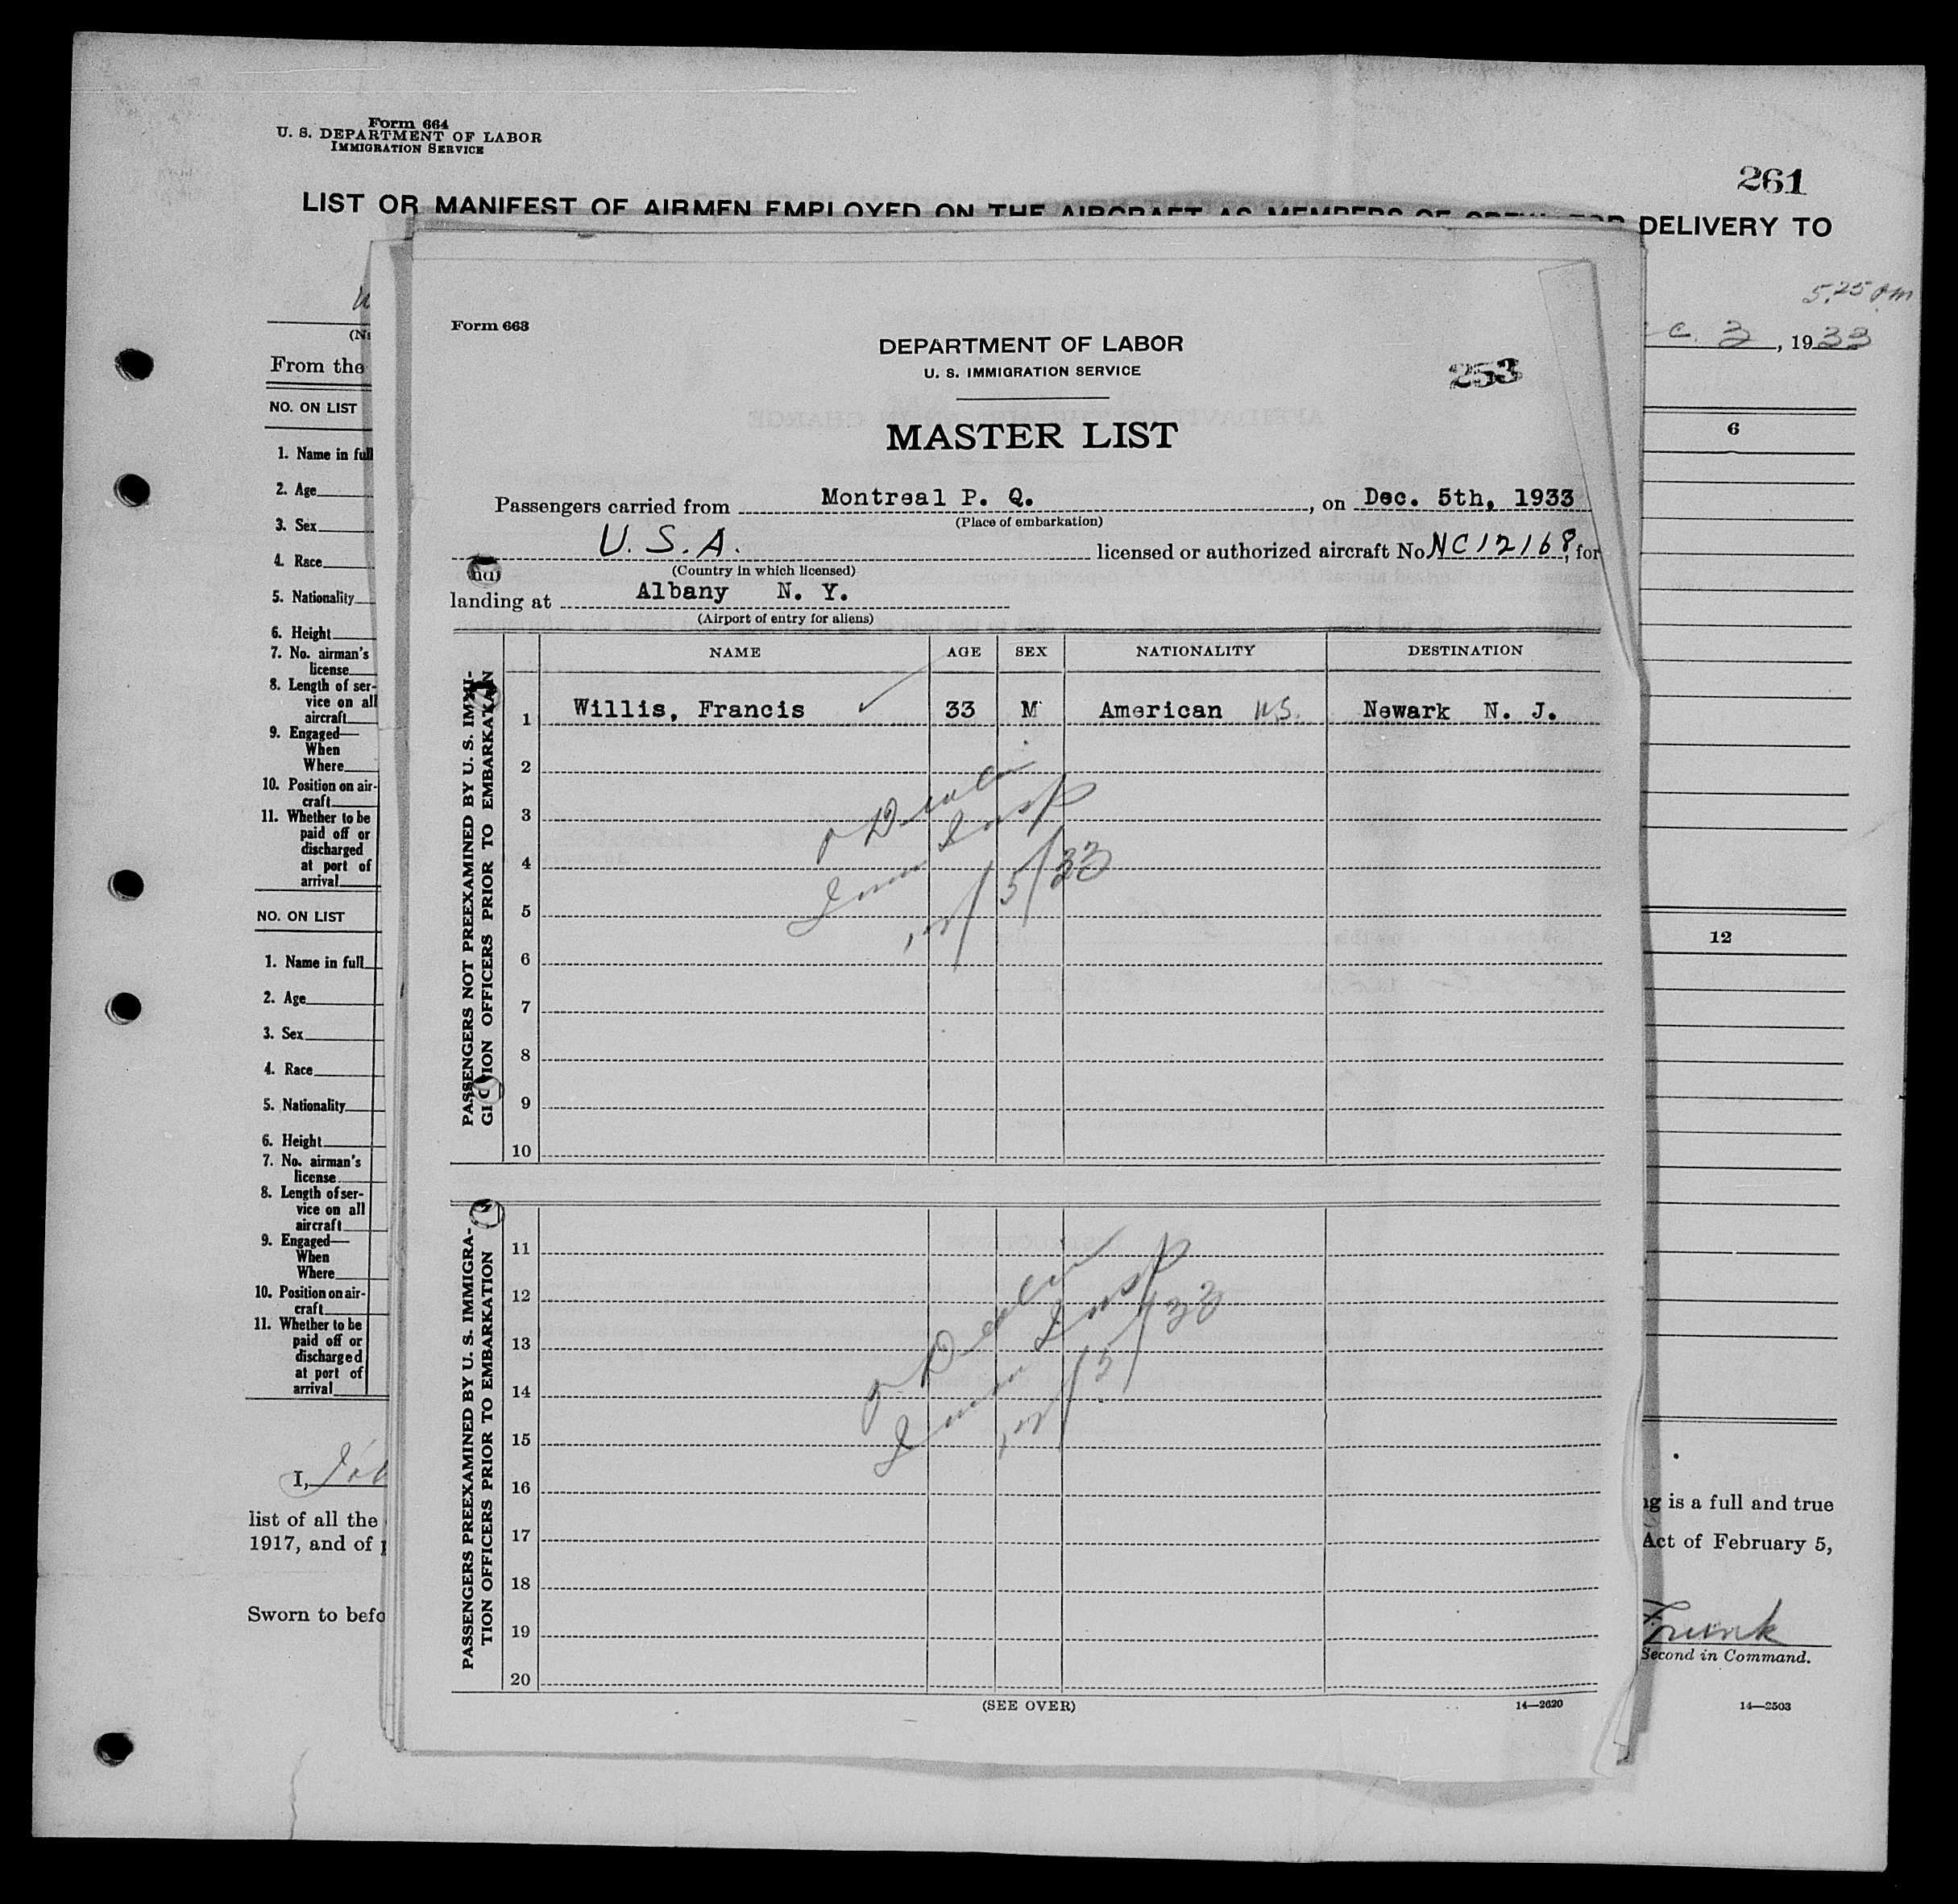 Form 664
U. S. DEPARTMENT OF LABOR
IMMIGRATION SERVICE
261
LIST OR MANIFEST OF AIRMEN EMPLOYED ON THE AIRCRAFT AS MEMBERS OF CREW, FOR DELIVERY TO
5.25 pm
3, 1933
From the
NO. ON LIST
6
1. Name in full
2. Age
3. Sex
4. Race
5. Nationality
6. Height
7. No. airman's
license
8. Length of ser-
vice on all
aircraft
9. Engaged—
When
Where
10. Position on air-
craft
11. Whether to be
paid off or
discharged
at port of
arrival
NO. ON LIST
12
1. Name in full
2. Age
3. Sex
4. Race
5. Nationality
6. Height
7. No. airman's
license
8. Length of ser-
vice on all
aircraft
9. Engaged—
When
Where
10. Position on air-
craft
11. Whether to be
paid off or
discharged
at port of
arrival
I,
list of all the
is a full and true
1917, and of
Act of February 5,
Sworn to befo
Second in Command.
14—2503
Form 663
DEPARTMENT OF LABOR
U. S. IMMIGRATION SERVICE
253
MASTER LIST
Passengers carried from Montreal P. Q., on Dec. 5th, 1933
(Place of embarkation)
U.S.A. licensed or authorized aircraft No. NC12168, for
(Country in which licensed)
landing at Albany N. Y.
(Airport of entry for aliens)
NAME AGE SEX NATIONALITY DESTINATION
PASSENGERS NOT PREEXAMINED BY U. S. IMMI-
GRATION OFFICERS PRIOR TO EMBARKATION
1 Willis, Francis 33 M American U.S. Newark N. J.
2
3
4
5
6
7
8
9
10
Imm Insp
12/5/33
PASSENGERS PREEXAMINED BY U. S. IMMIGRA-
TION OFFICERS PRIOR TO EMBARKATION
11
12
13
14
15
16
17
18
19
20
Imm Insp
12/5/33
(SEE OVER)
14—2620